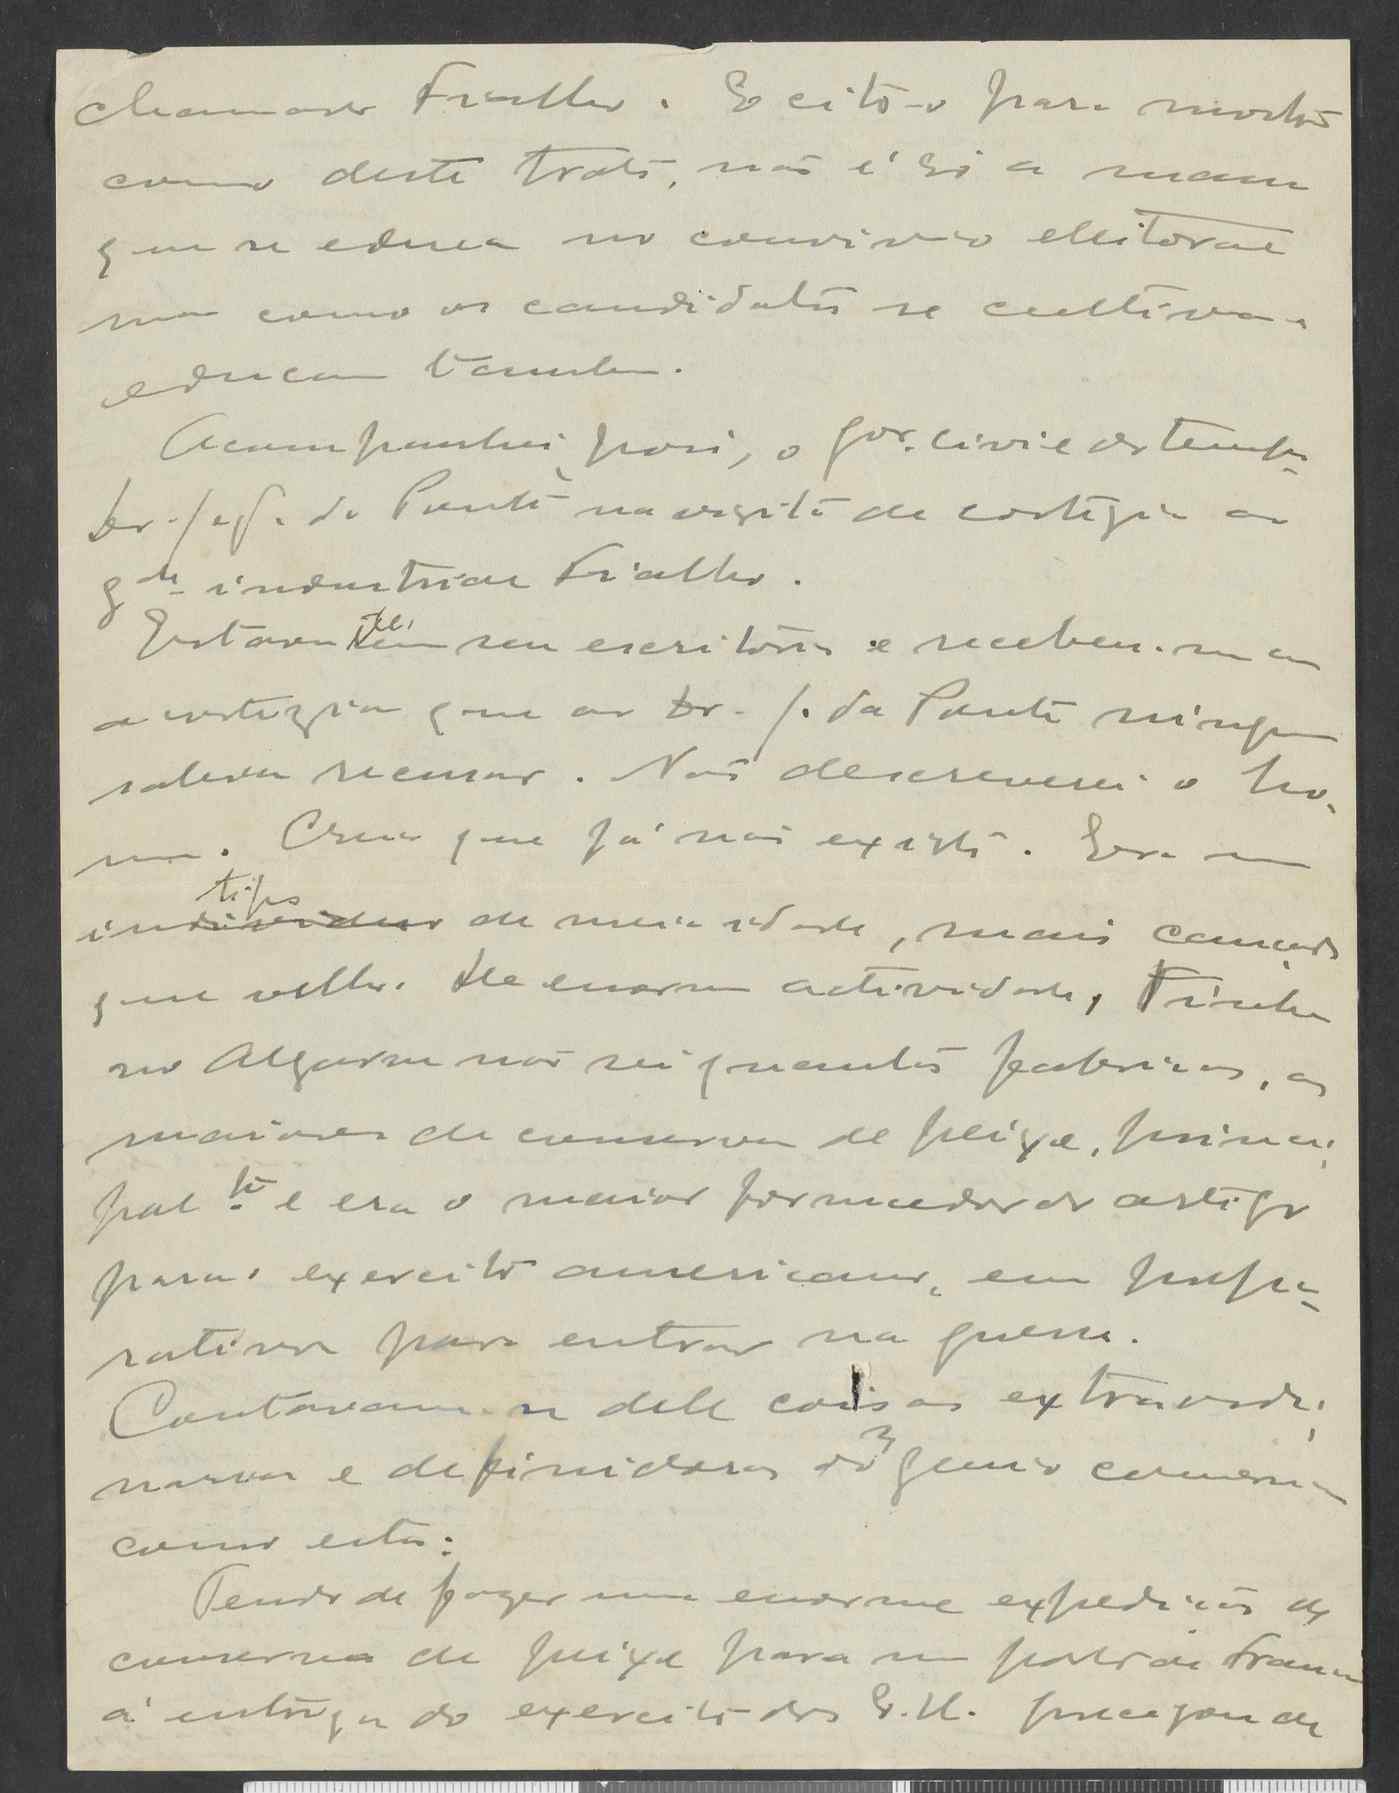 chamado Fialho. E cito-o para mostrar
como deste trato, não é só a massa
que se educa no convivio elleitoral
mas como os candidatos se cultivam e
educam tambem.
Acompanhei, pois, o gov. civil do tempo
Dr. J. da Ponte na vizita de cortezia ao
gde industrial Fialho.
Estava ele em seu escritório e recebeu-me com
a cortezia que ao Dr. J. da Ponte ninguem
sabia recusar. Não descreverei o ho-
mem. Creio que já não existe. Era um
individuo tipo de meia idade, mais cançado
que velho. De enorme actividade, Tinha
no Algarve não sei quantas fabricas, as
maiores de conserva de peixe, princi-
palte e era o maior fornecedor do artigo
para o exercito americano, em prepa-
rativos para entrar na guerra.
Contavam-se dele coisas extraordi-
narias e definidoras do genio comercial
como esta:
Tendo de fazer uma enorme expedição de
conserva de peixe para um porto de França
á entrega do exercito dos E.U. precizou de